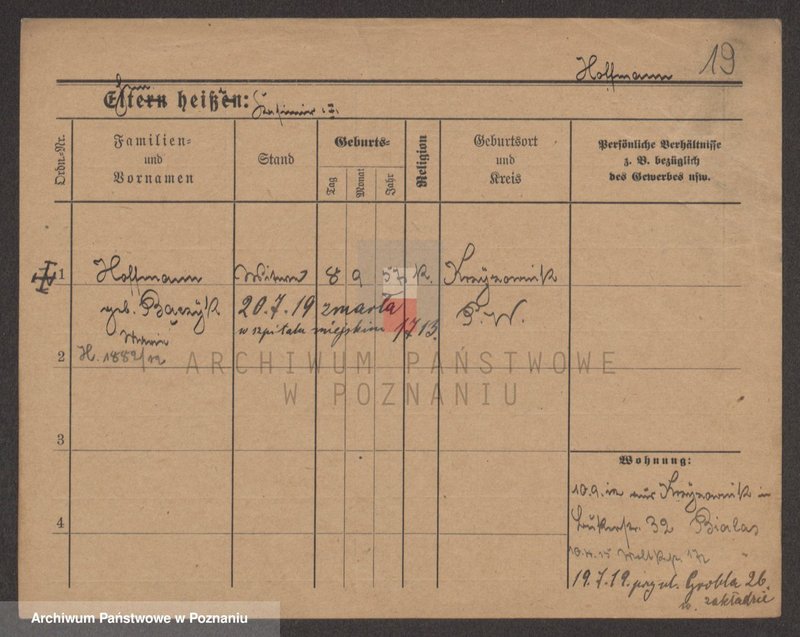 19
Hoffmann
Eltern heißen:
Ordn.-Nr.
Familien-
und
Vornamen
Stand
Geburts-
Tag
Monat
Jahr
Religion
Geburtsort
und
Kreis
Persönliche Verhältnisse
z. B. bezüglich
des Gewerbes usw.
1
Hoffmann
Witwe
8 9 57 k.
geb. Bączyk
20.7.19 zmarła
P. W.
w szpitalu miejskim 1713.
2
H. 1882/12
ARCHIWUM PAŃSTWOWE
W POZNANIU
3
Wohnung:
10.9.12
32 Bialas
4
19.7.19. przy ul. Grobla 26.
w. zakładzie
Archiwum Państwowe w Poznaniu